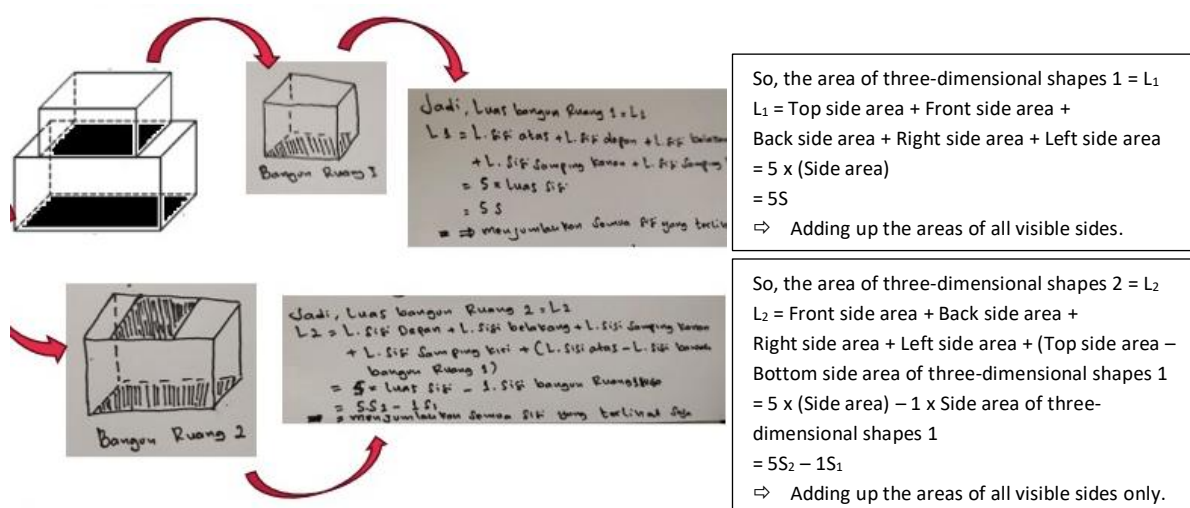 Bangun Ruang 1
Jadi, Luas bangun Ruang 1 = L1
L1 = L. sisi atas + L. sisi depan + L. sisi
+ L. sisi samping kanan + L. sisi samping
= 5 x luas sisi
= 5 S
⇒ menjumlahkan semua sisi yang
So, the area of three-dimensional shapes 1 = L₁
L₁ = Top side area + Front side area +
Back side area + Right side area + Left side area
= 5 x (Side area)
= 5S
⇨ Adding up the areas of all visible sides.
Bangun Ruang 2
Jadi, Luas bangun Ruang 2 = L2
L2 = L. sisi Depan + L. sisi belakang + L. sisi samping kanan
+ L. sisi samping kiri + (L. sisi atas - L. sisi
bangun Ruang 1)
= 5 x luas sisi - 1. sisi bangun Ruang
= 5S2 - 1S1
= menjumlahkan semua sisi yang terlihat saja
So, the area of three-dimensional shapes 2 = L₂
L₂ = Front side area + Back side area +
Right side area + Left side area + (Top side area –
Bottom side area of three-dimensional shapes 1
= 5 x (Side area) – 1 x Side area of three-
dimensional shapes 1
= 5S₂ – 1S₁
⇨ Adding up the areas of all visible sides only.